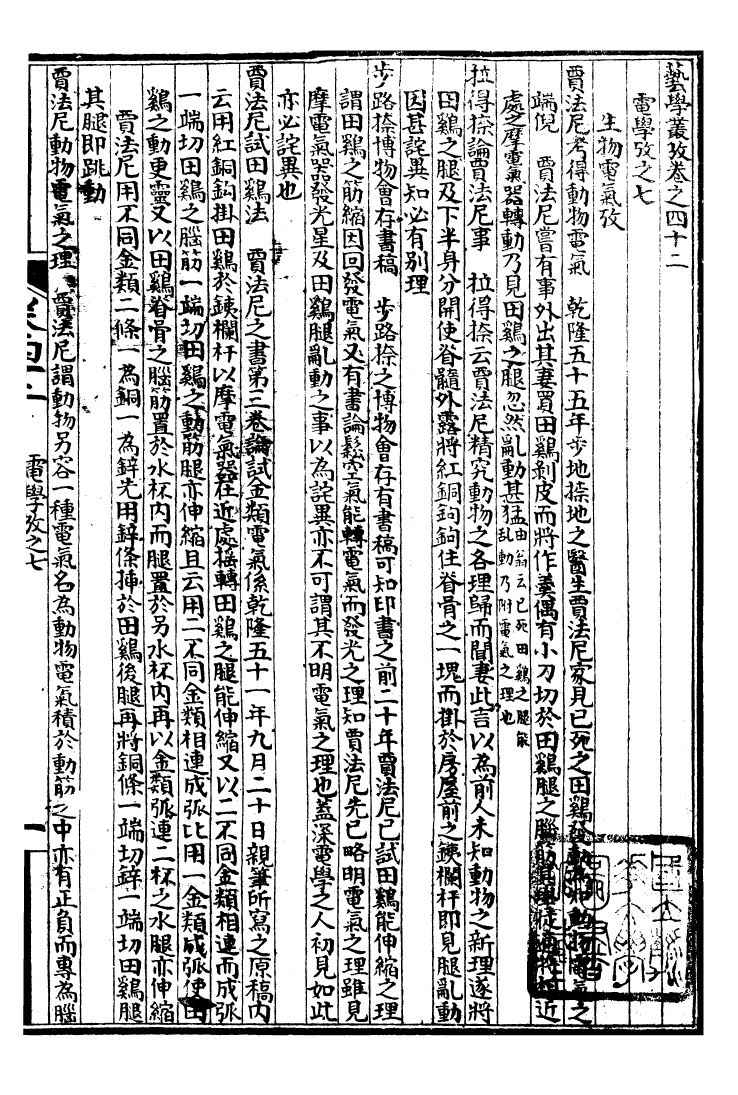 藝學叢攷卷之四十二
電學攷之七
生物電氣攷
賈法尼考得動物電氣　乾隆五十五年步地捺地之醫生賈法尼家見已死之田鷄發動為動物電氣之
端倪　賈法尼嘗有事外出其妻買田鷄剝皮而將作羹偶有小刀切於田鷄腿之腦筋其近
處之摩電氣器轉動乃見田鷄之腿忽然亂動甚猛由翁云已死田鷄之腿能亂動乃附電氣之理也
拉得捺論賈法尼事　拉得捺云賈法尼精究動物之各理歸而聞妻此言以為前人未知動物之新理遂將
田鷄之腿及下半身分開使脊髓外露將紅銅鉤鉤住脊骨之一塊而掛於房屋前之鐵欄杆即見腿亂動
因甚詫異知必有別理
步路捺博物會存書稿　步路捺之博物會存有書稿可知印書之前二十年賈法尼已試田鷄能伸縮之理
謂田鷄之筋縮因回發電氣又有書論鬆空氣能轉電氣而發光之理知賈法尼先已略明電氣之理雖見
摩電氣器發光星及田鷄腿亂動之事以為詫異亦不可謂其不明電氣之理也蓋深電學之人初見如此
亦必詫異也
賈法尼試田鷄法　賈法尼之書第三卷論試金類電氣係乾隆五十一年九月二十日親筆所寫之原稿內
云用紅銅鉤掛田鷄於鐵欄杆以摩電氣器在近處搖轉田鷄之腿能伸縮又以二不同金類相連而成弧
一端切田鷄之腦筋一端切田鷄之動筋腿亦伸縮且云用二不同金類相連成弧比用一金類成弧使田
鷄之動更靈又以田鷄脊骨之腦筋置於水杯內而腿置於另水杯內再以金類弧連二杯之水腿亦伸縮
賈法尼用不同金類二條一為銅一為鋅先用鋅條插於田鷄後腿再將銅條一端切鋅一端切田鷄腿
其腿即跳動
賈法尼動物電氣之理　賈法尼謂動物另容一種電氣名為動物電氣積於動筋之中亦有正負而專為腦
電學攷之七